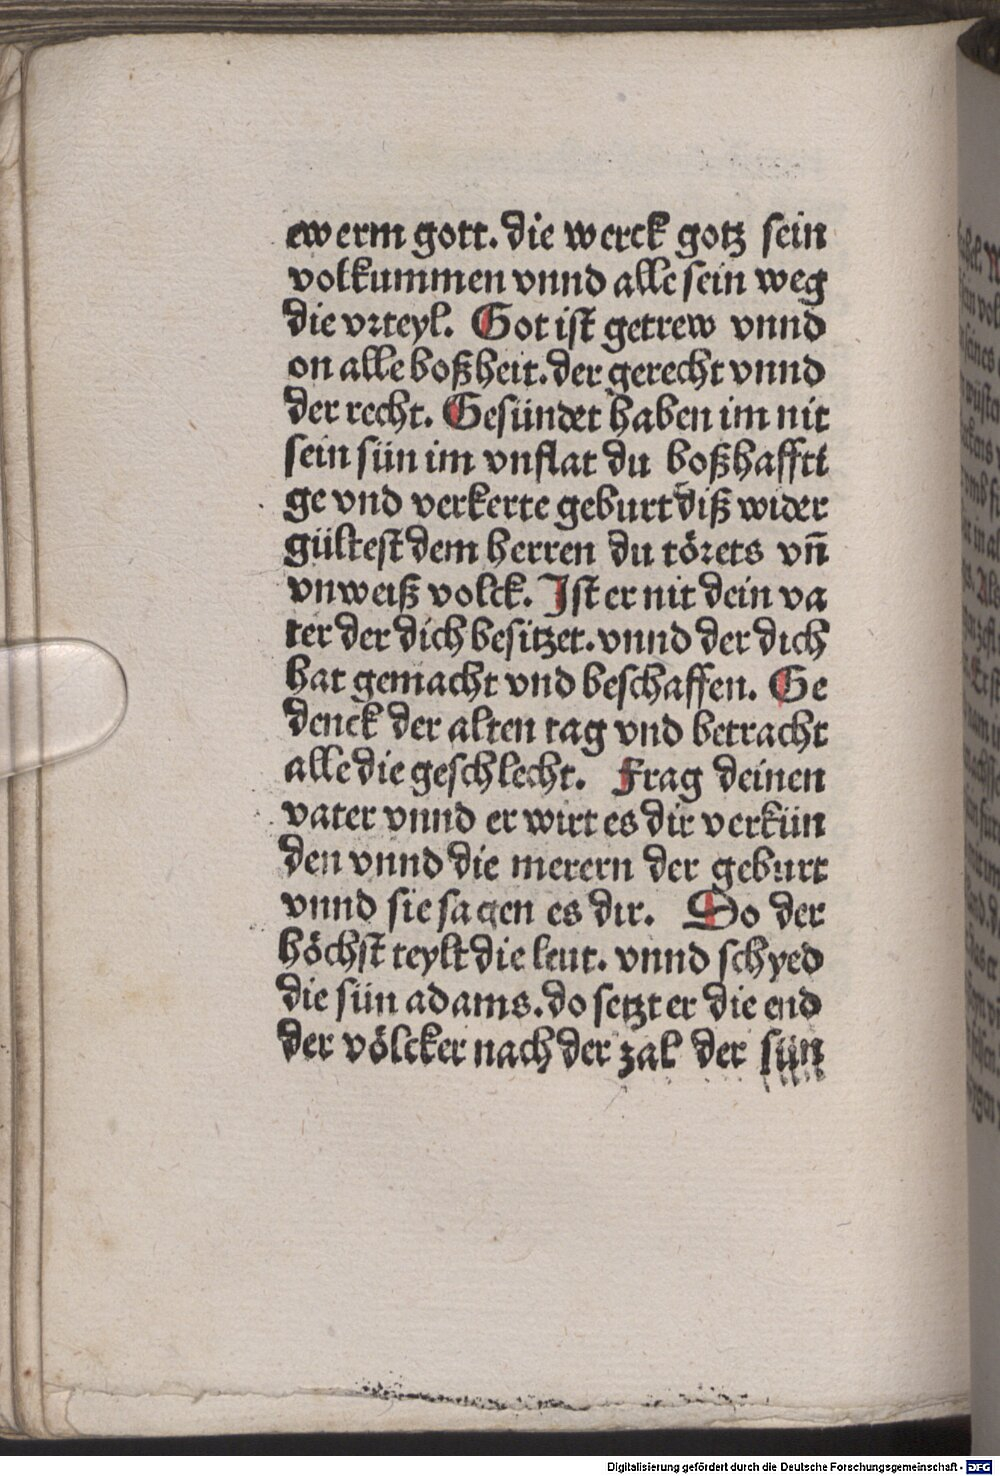 ewerm gott. die werck gotz sein
volkummen vnnd alle sein weg
die vrteyl. Got ist getrew vnnd
on alle boßheit. der gerecht vnnd
der recht. Gesündet haben im nit
sein sün im vnflat du boßhaffti
ge vnd verkerte geburt diß wider
gültest dem herren du törets vñ
vnweiß volck. Ist er nit dein va
ter der dich besitzet. vnnd der dich
hat gemacht vnd beschaffen. Ge
denck der alten tag vnd betracht
alle die geschlecht. Frag deinen
vater vnnd er wirt es dir verkün
den vnnd die merern der geburt
vnnd sie sagen es dir. Do der
höchst teylt die leut. vnnd schyed
die sün adams. do setzt er die end
der völcker nach der zal der sün
Digitalisierung gefördert durch die Deutsche Forschungsgemeinschaft - DFG